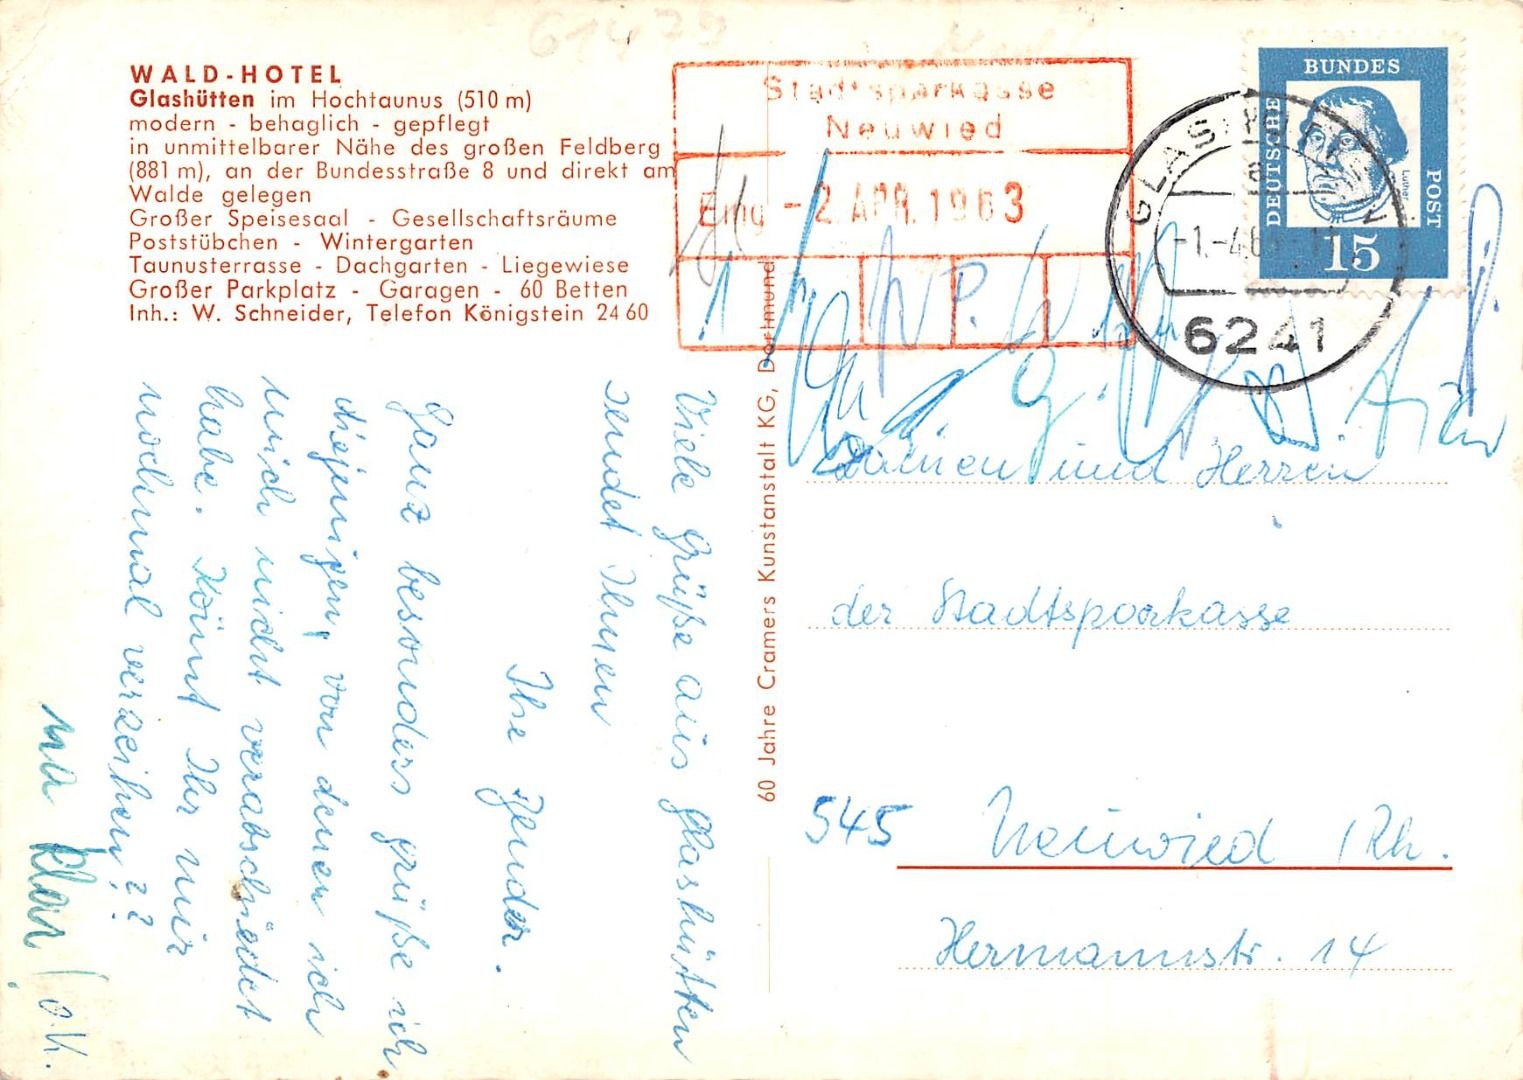 WALD-HOTEL
Glashütten im Hochtaunus (510 m)
modern - behaglich - gepflegt
in unmittelbarer Nähe des großen Feldberg
(881 m), an der Bundesstraße 8 und direkt am
Walde gelegen
Großer Speisesaal - Gesellschaftsräume
Poststübchen - Wintergarten
Taunusterrasse - Dachgarten - Liegewiese
Großer Parkplatz - Garagen - 60 Betten
Inh.: W. Schneider, Telefon Königstein 24 60
Viele Grüße aus Glashütten
sendet Ihnen
Ihre
Ganz besonders grüße ich
diejenigen, von denen ich
mich nicht verabschiedet
habe. Könnt Ihr mir
nochmal verzeihen??
na klar!
60 Jahre Cramers Kunstanstalt KG, Dortmund
Stadtsparkasse
Neuwied
Eing - 2. APR. 1963
DEUTSCHE
BUNDES
POST
Luther
15
GLASHÜTTEN
6241
Damen und Herren
der Stadtsparkasse
545 Neuwied /Rh.
Hermannstr. 14